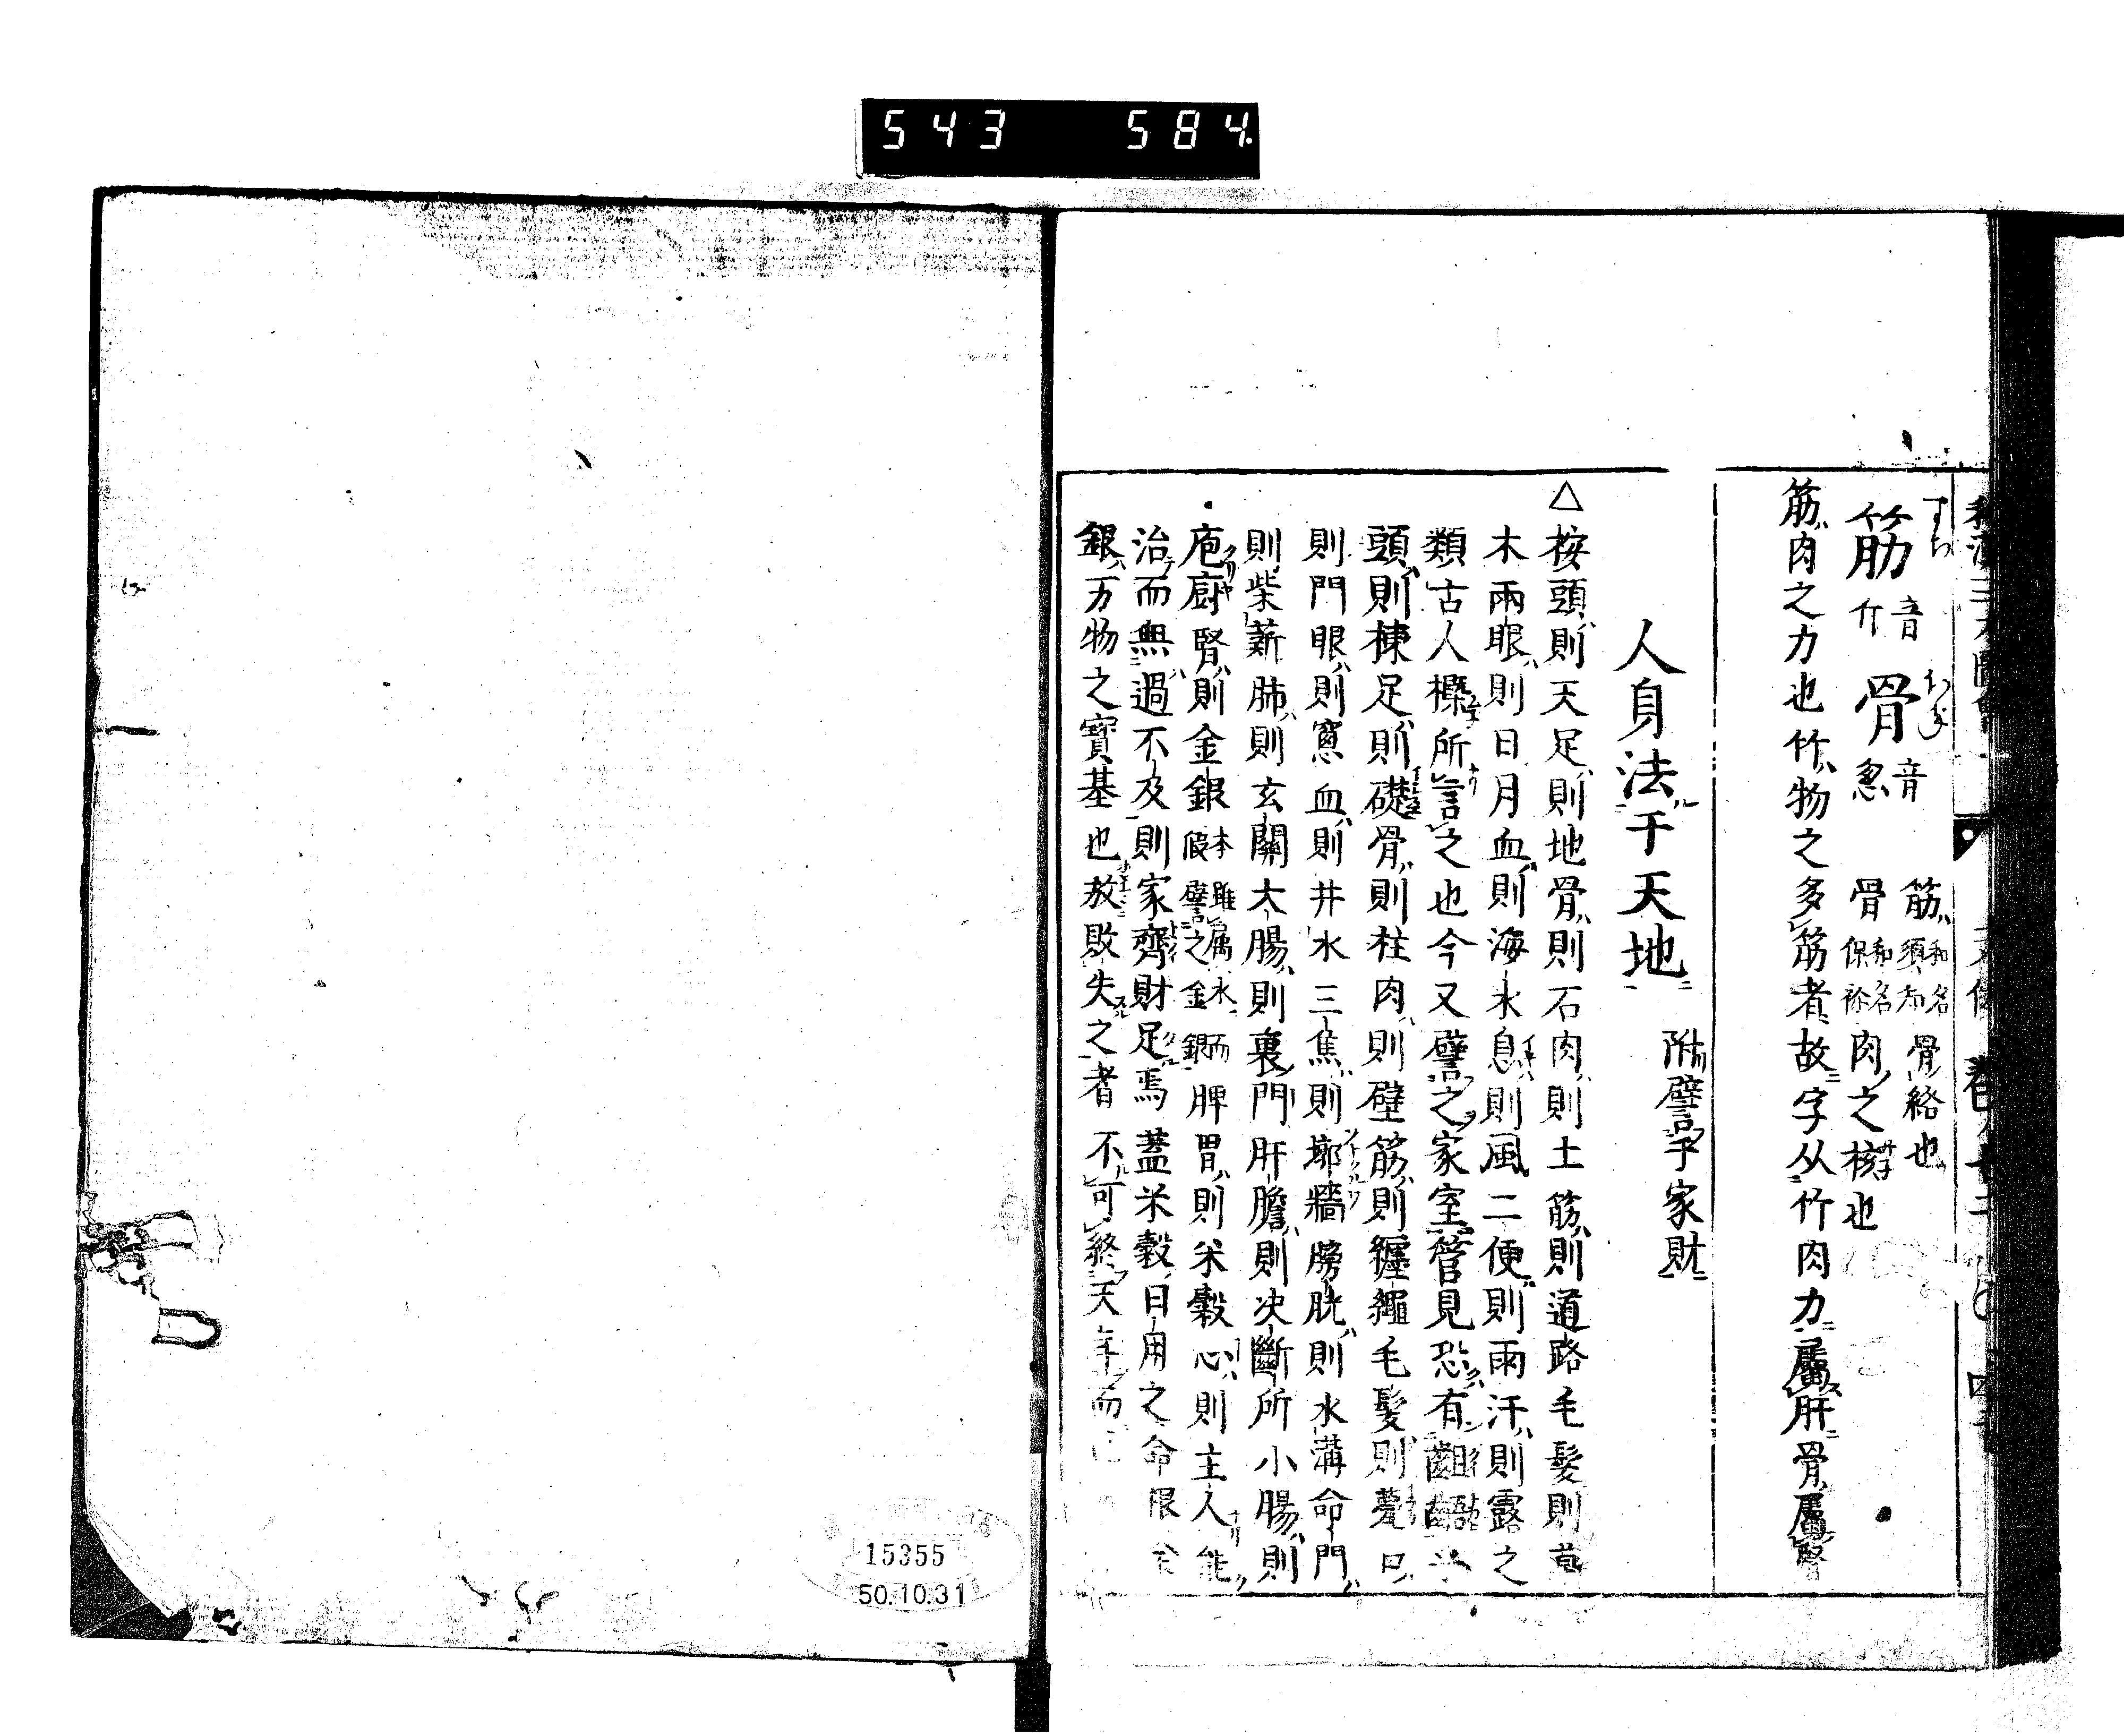 543 584
筋 音斤 骨 音忽 筋和名須知骨絡也
骨和名保祢肉之核也
筋肉之力也竹物之多筋者故字从竹肉力屬肝骨屬腎
人身法于天地 附譬于家財
△按頭則天足則地骨則石肉則土筋則道路毛髮則草
木兩眼則日月血則海水息則風二便則雨汗則露之
類古人槩所言之也今又譬之家室管見恐有齟齬
頭則棟足則礎骨則柱肉則壁筋則纏繩毛髮則甍口
則門眼則窻血則井水三焦則墎牆膀胱則水溝命門
則柴薪肺則玄關大腸則裏門肝膽則决斷所小腸則
庖廚腎則金銀本雖屬水而假譬之金銀脾胃則米穀心則主人能
治而無過不及則家齊財足焉蓋米穀日用之命根金
銀万物之寶基也放敗失之者不可終天年而已
15355
50.10.31